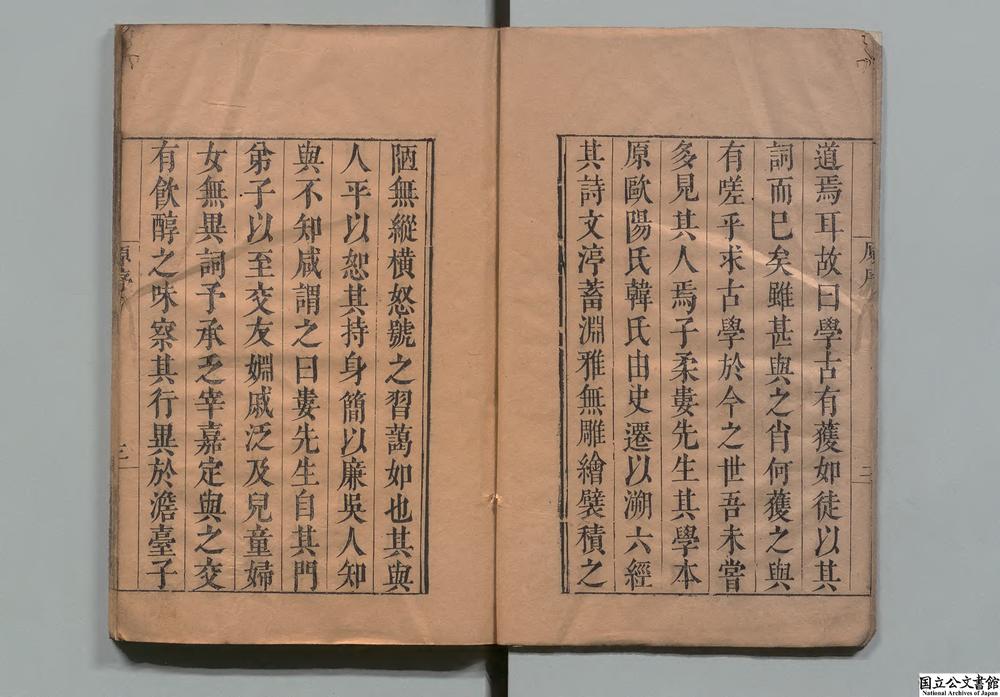 道焉耳故曰學古有獲如徒以其
詞而已矣雖甚與之肖何獲之與
有嗟乎求古學於今之世吾未嘗
多見其人焉子柔婁先生其學本
原歐陽氏韓氏由史遷以溯六經
其詩文渟蓄淵雅無雕繪襞積之
原序
二
陋無縱橫怒號之習藹如也其與
人平以恕其持身簡以廉吳人知
與不知咸謂之曰婁先生自其門
弟子以至交友婣戚泛及兒童婦
女無異詞予承乏宰嘉定與之交
有飲醇之味察其行異於澹臺子
原序
三
国立公文書館
National Archives of Japan